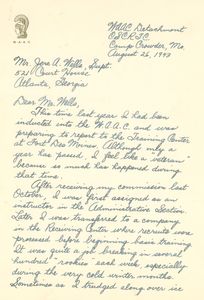 W.A.A.C.
WAAC Detachment
CSCRTC
Camp Crowder, Mo.
August 26, 1943
Mr. Jere A. Wells, Supt.
521 Court House
Atlanta, Georgia
Dear Mr. Wells,
This time last year I had been
inducted into the W.A.A.C. and was
preparing to report to the Training Center
at Fort Des Moines. Although only a
year has passed, I feel like a "veteran"
because so much has happened during
that time.
After receiving my commission last
October, I was first assigned as an
instructor in the Administrative Section.
Later I was transferred to a company
in the Receiving Center where recruits were
processed before beginning basic training.
It was quite a job breaking in several
hundred "rookies" each week, especially
during the very cold winter months.
Sometimes as I trudged along over ice